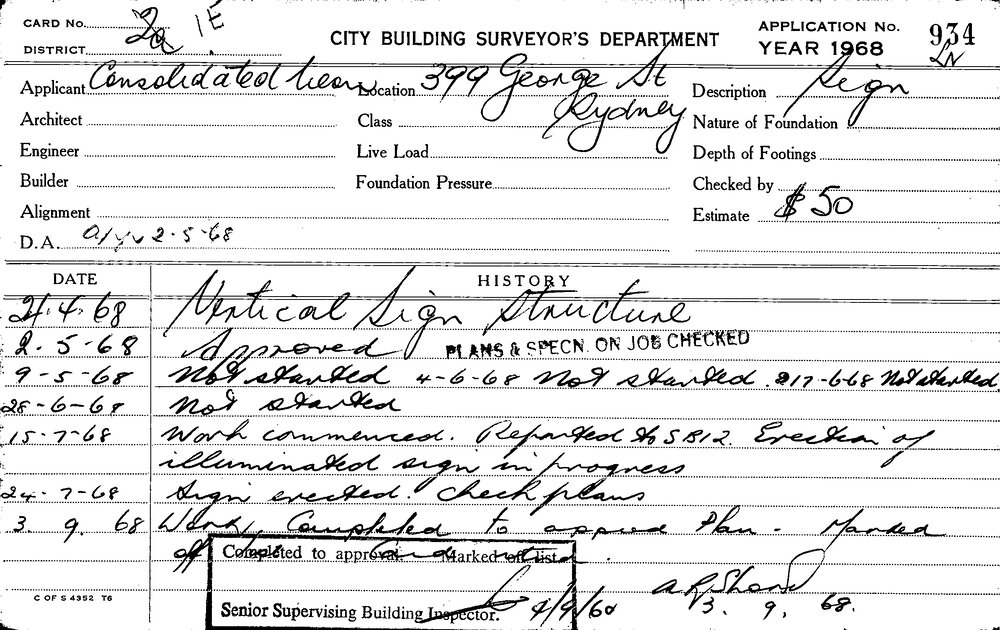 CARD No. 2a 1E
DISTRICT
CITY BUILDING SURVEYOR'S DEPARTMENT
APPLICATION No. 934
YEAR 1968 LN
Applicant Consolidated Neon Location 399 George St Description Sign
Sydney
Architect Class Nature of Foundation
Engineer Live Load Depth of Footings
Builder Foundation Pressure Checked by
Alignment Estimate $50
D.A. 2-5-68
DATE HISTORY
4.68 Vertical Sign Structure
2-5-68 Approved PLANS & SPECN. ON JOB CHECKED
9-5-68 Not started 4-6-68 Not started. 17-6-68 Not started.
28-6-68 Not started
15-7-68 Work commenced. Reported to SB12. Erection of
illuminated sign in progress
24-7-68 Sign erected. Check plans
3. 9. 68 Work Completed to appred Plan - Marked
off list Card
Completed to approval. Marked off list.
A.R. 3. 9. 68.
Senior Supervising Building Inspector. 4/9/68
C OF S 4352 T6